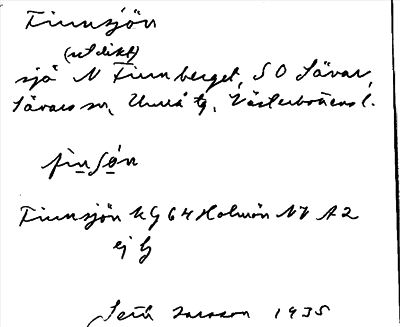 Finnsjön
(utdikt)
sjö N Finnberget, SO Sävar,
Sävars sn, Umeå tg, Västerbottens l.
fìnSón
Finnsjön kg 64 Holmön NV A2
ej G
Seth Larsson 1935